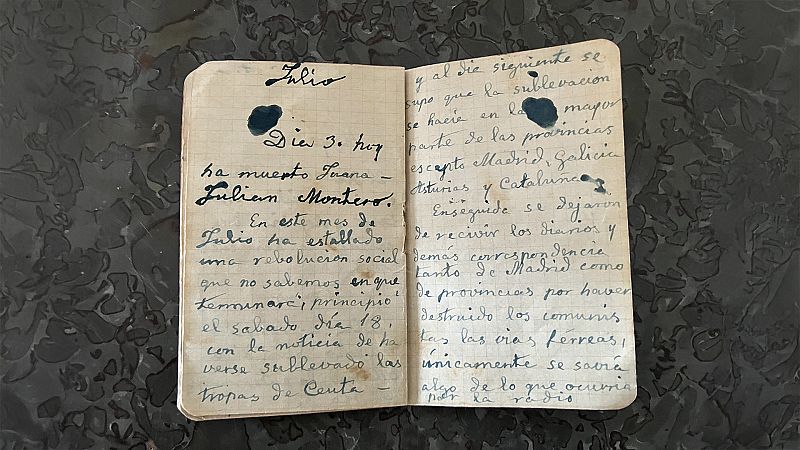 Julio
Dia 3. hoy
ha muerto Juana –
Julian Montero.
En este mes de
Julio ha estallado
una rebolucion social
que no sabemos en que
terminará, principió
el sabado día 18,
con la noticia de ha
verse sublevado las
tropas de Ceuta –
y al dia siguiente se
supo que la sublevacion
se hacia en la mayor
parte de las provincias
escepto Madrid, Galicia
Asturias y Cataluña
Enseguida se dejaron
de recivir los diarios y
demás correspondencia
tanto de Madrid como
de provincias por haver
destruido los comunis
tas las vias férreas,
únicamente se savia
algo de lo que ocurria
por la radio